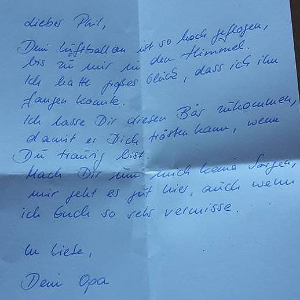 lieber Phil,
Dein Luftballon ist so hoch geflogen,
bis zu mir in den Himmel.
Ich hatte großes Glück, dass ich ihn
fangen konnte.
Ich lasse Dir diesen Bär zukommen,
damit er Dich trösten kann, wenn
Du traurig bist.
Mach Dir um mich keine Sorgen,
mir geht es gut hier, auch wenn
ich Euch so sehr vermisse.
In Liebe,
Dein Opa